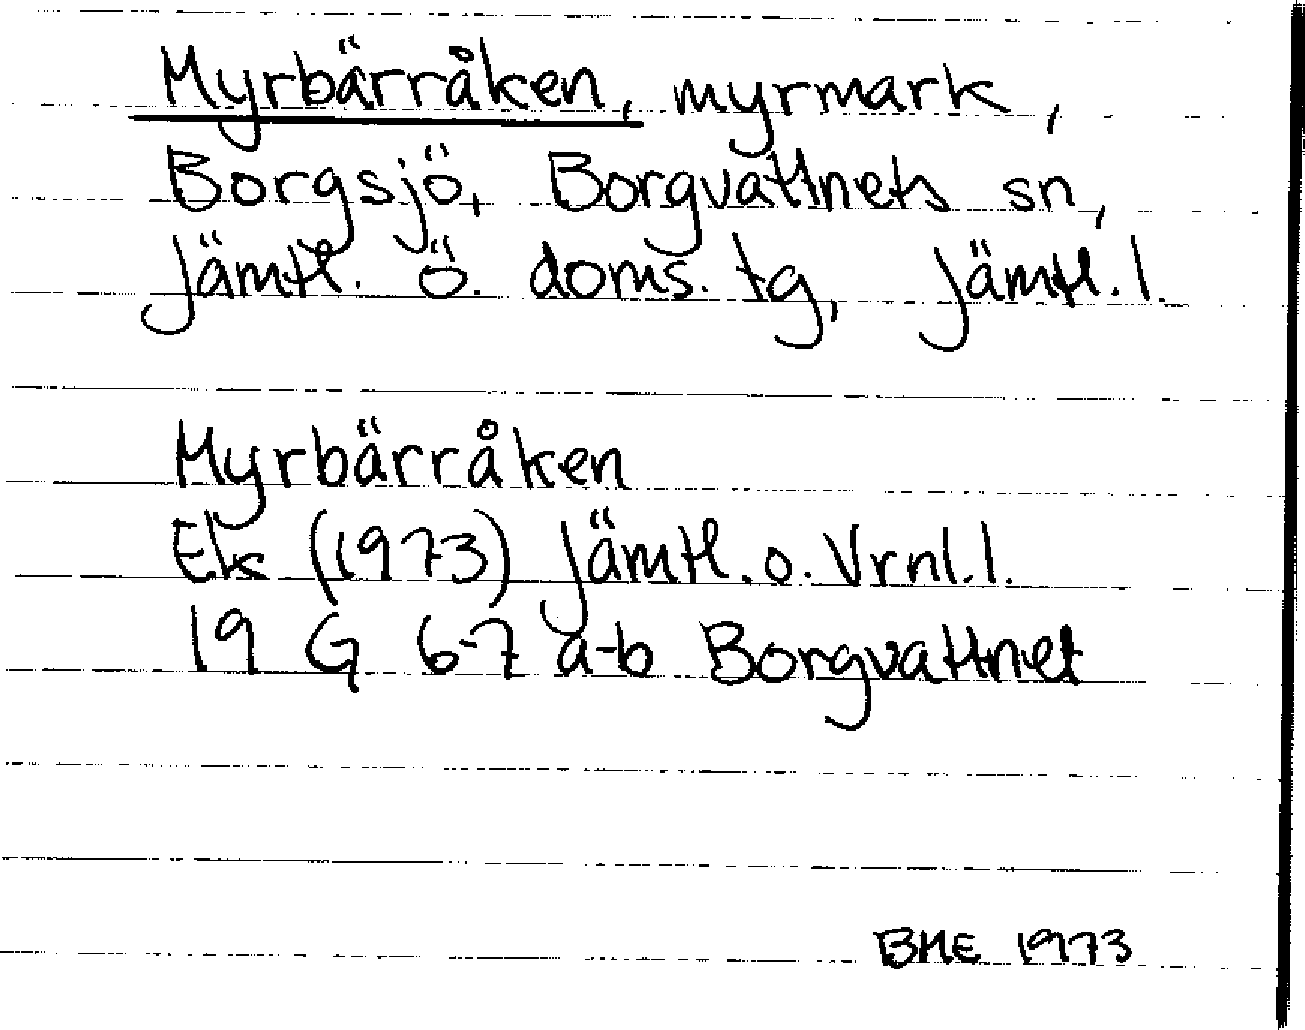 Myrbärråken, myrmark,
Borgsjö, Borgvattnets sn,
Jämtl. ö. doms. tg, Jämtl. l.
Myrbärråken
Ek (1973) Jämtl. o. Vrnl. l.
19 G 6-7 a-b Borgvattnet
BME 1973